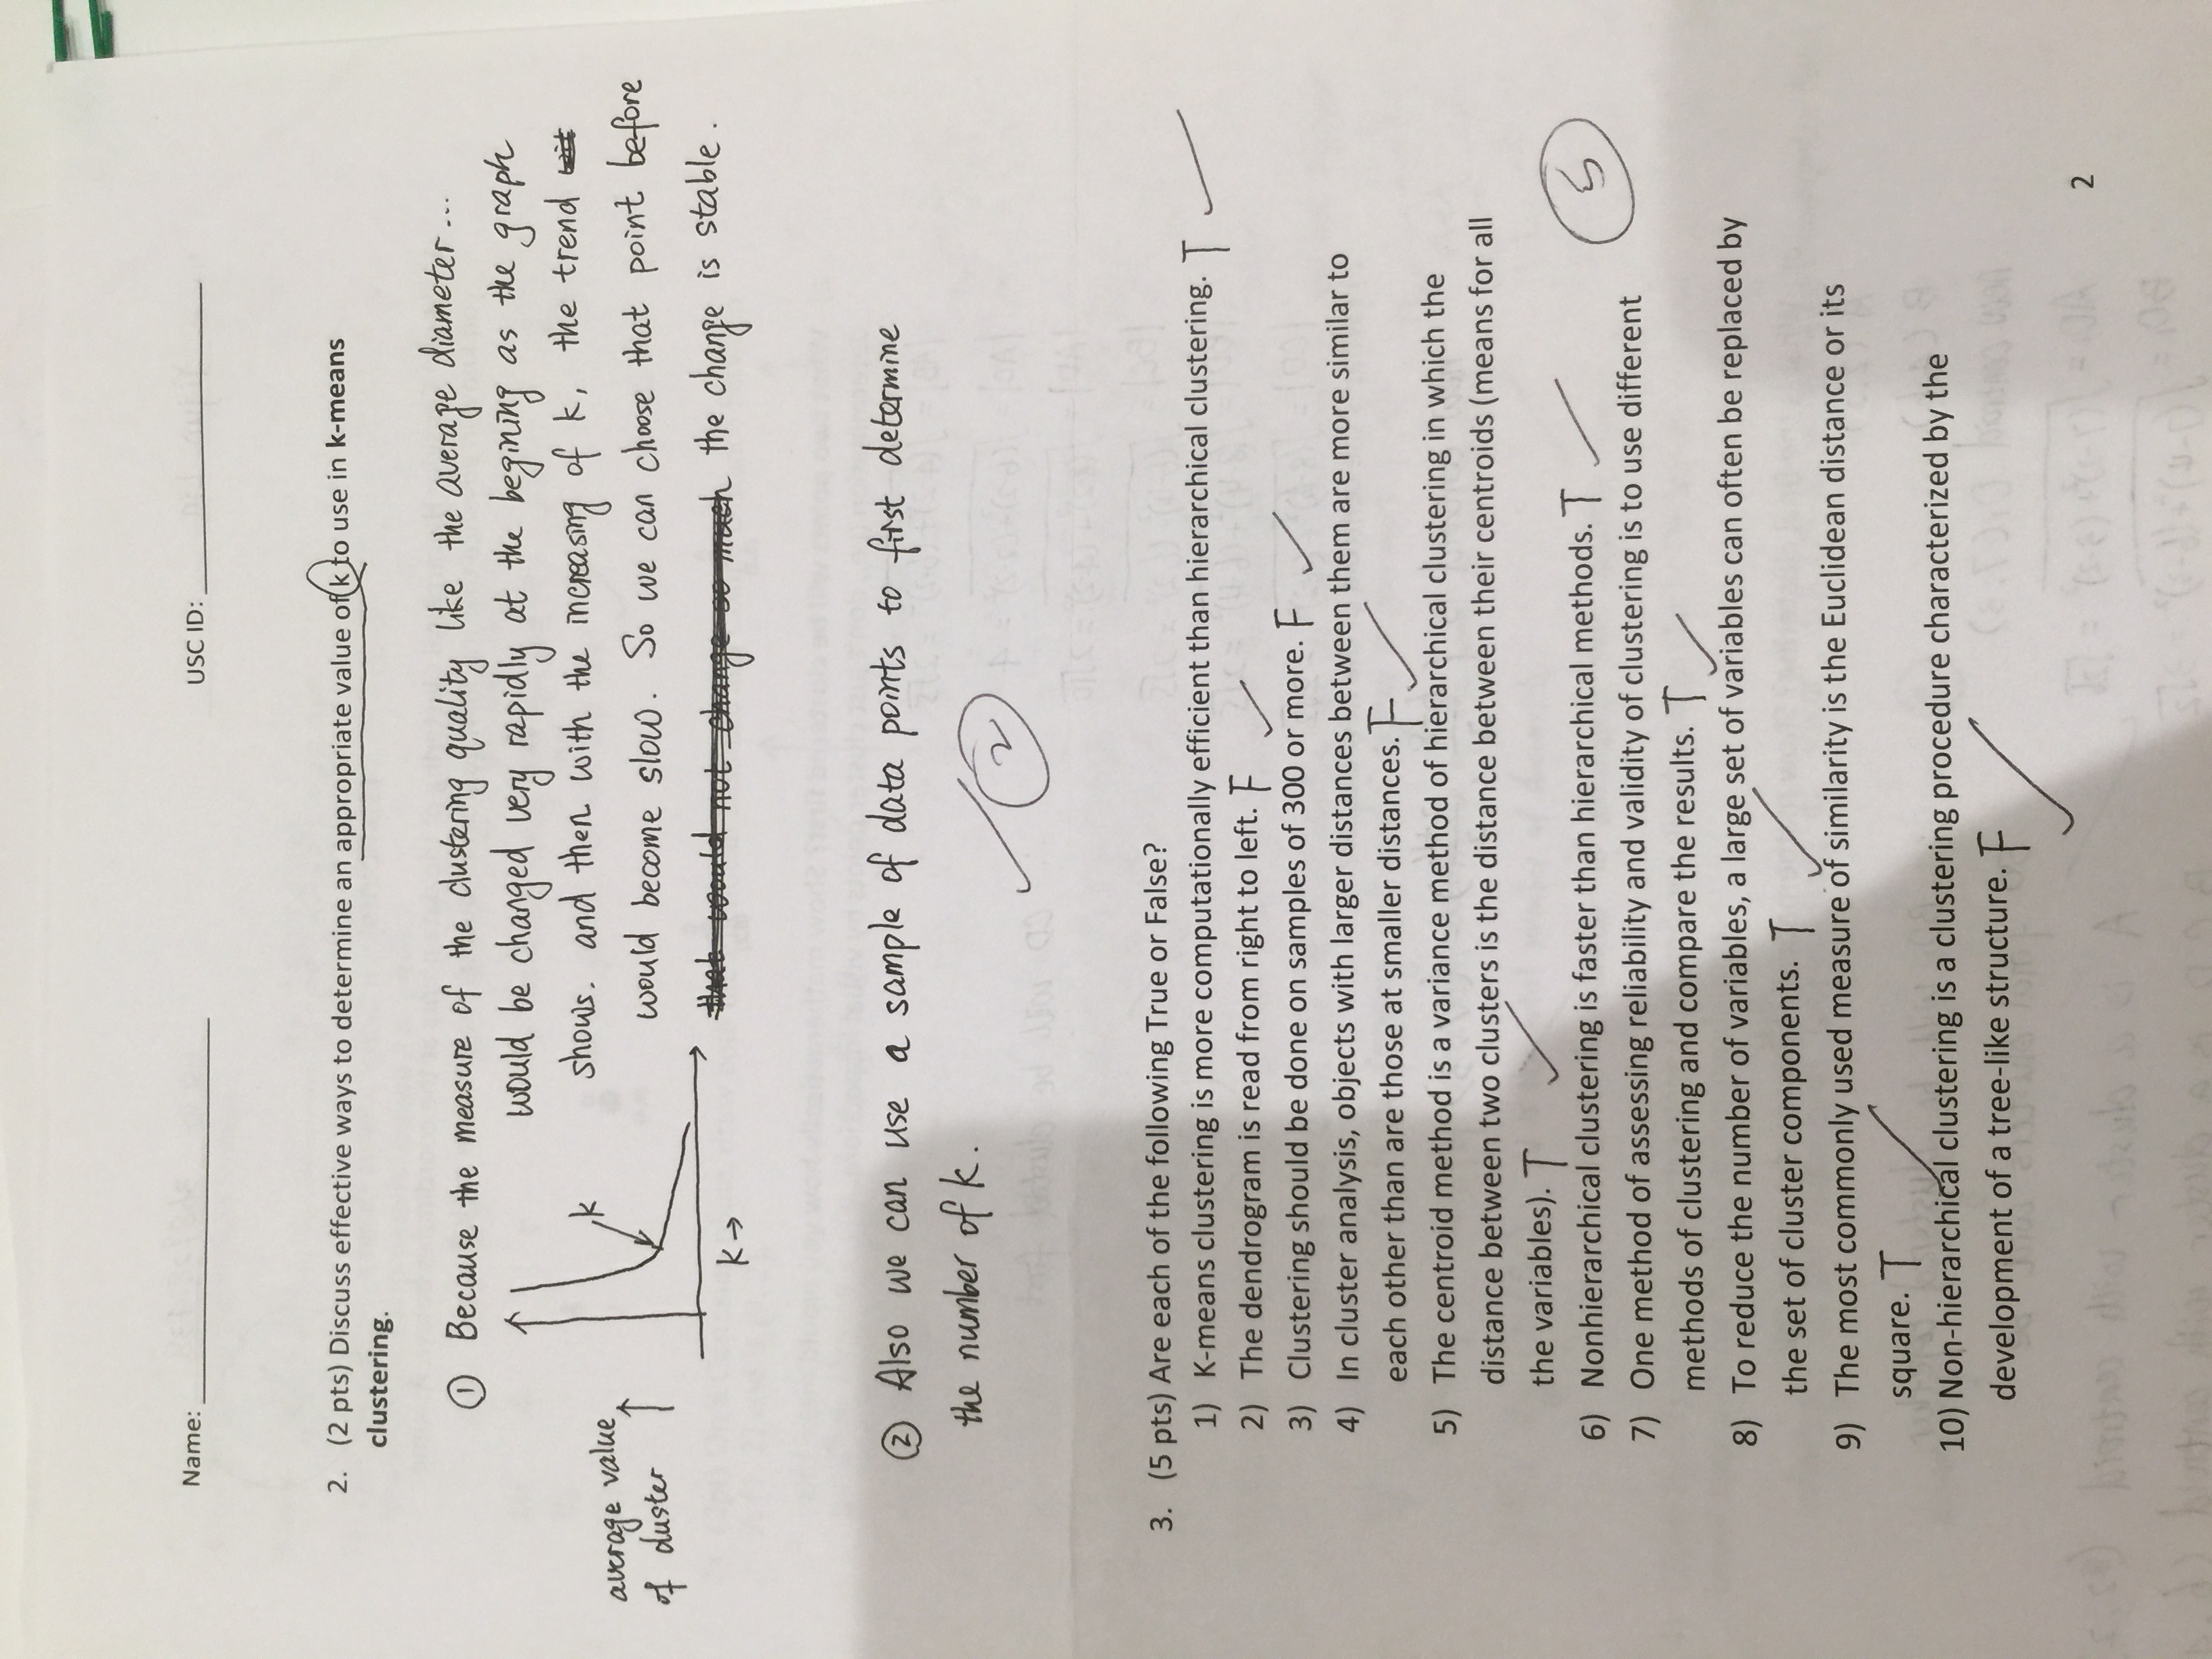 Name: USC ID:
2. (2 pts) Discuss effective ways to determine an appropriate value of k to use in k-means
clustering.
① Because the measure of the clustering quality like the average diameter...
would be changed very rapidly at the begining as the graph
shows. and then with the increasing of k, the trend
k
average value
of cluster
would become slow. So we can choose that point before
that would not change so much the change is stable.
k→
② Also we can use a sample of data points to first determine
the number of k.
2
3. (5 pts) Are each of the following True or False?
1) K-means clustering is more computationally efficient than hierarchical clustering. T
2) The dendrogram is read from right to left. F
3) Clustering should be done on samples of 300 or more. F
4) In cluster analysis, objects with larger distances between them are more similar to
each other than are those at smaller distances. F
5) The centroid method is a variance method of hierarchical clustering in which the
distance between two clusters is the distance between their centroids (means for all
the variables). T
6) Nonhierarchical clustering is faster than hierarchical methods. T
5
7) One method of assessing reliability and validity of clustering is to use different
methods of clustering and compare the results. T
8) To reduce the number of variables, a large set of variables can often be replaced by
the set of cluster components. T
9) The most commonly used measure of similarity is the Euclidean distance or its
square. T
10) Non-hierarchical clustering is a clustering procedure characterized by the
development of a tree-like structure. F
2